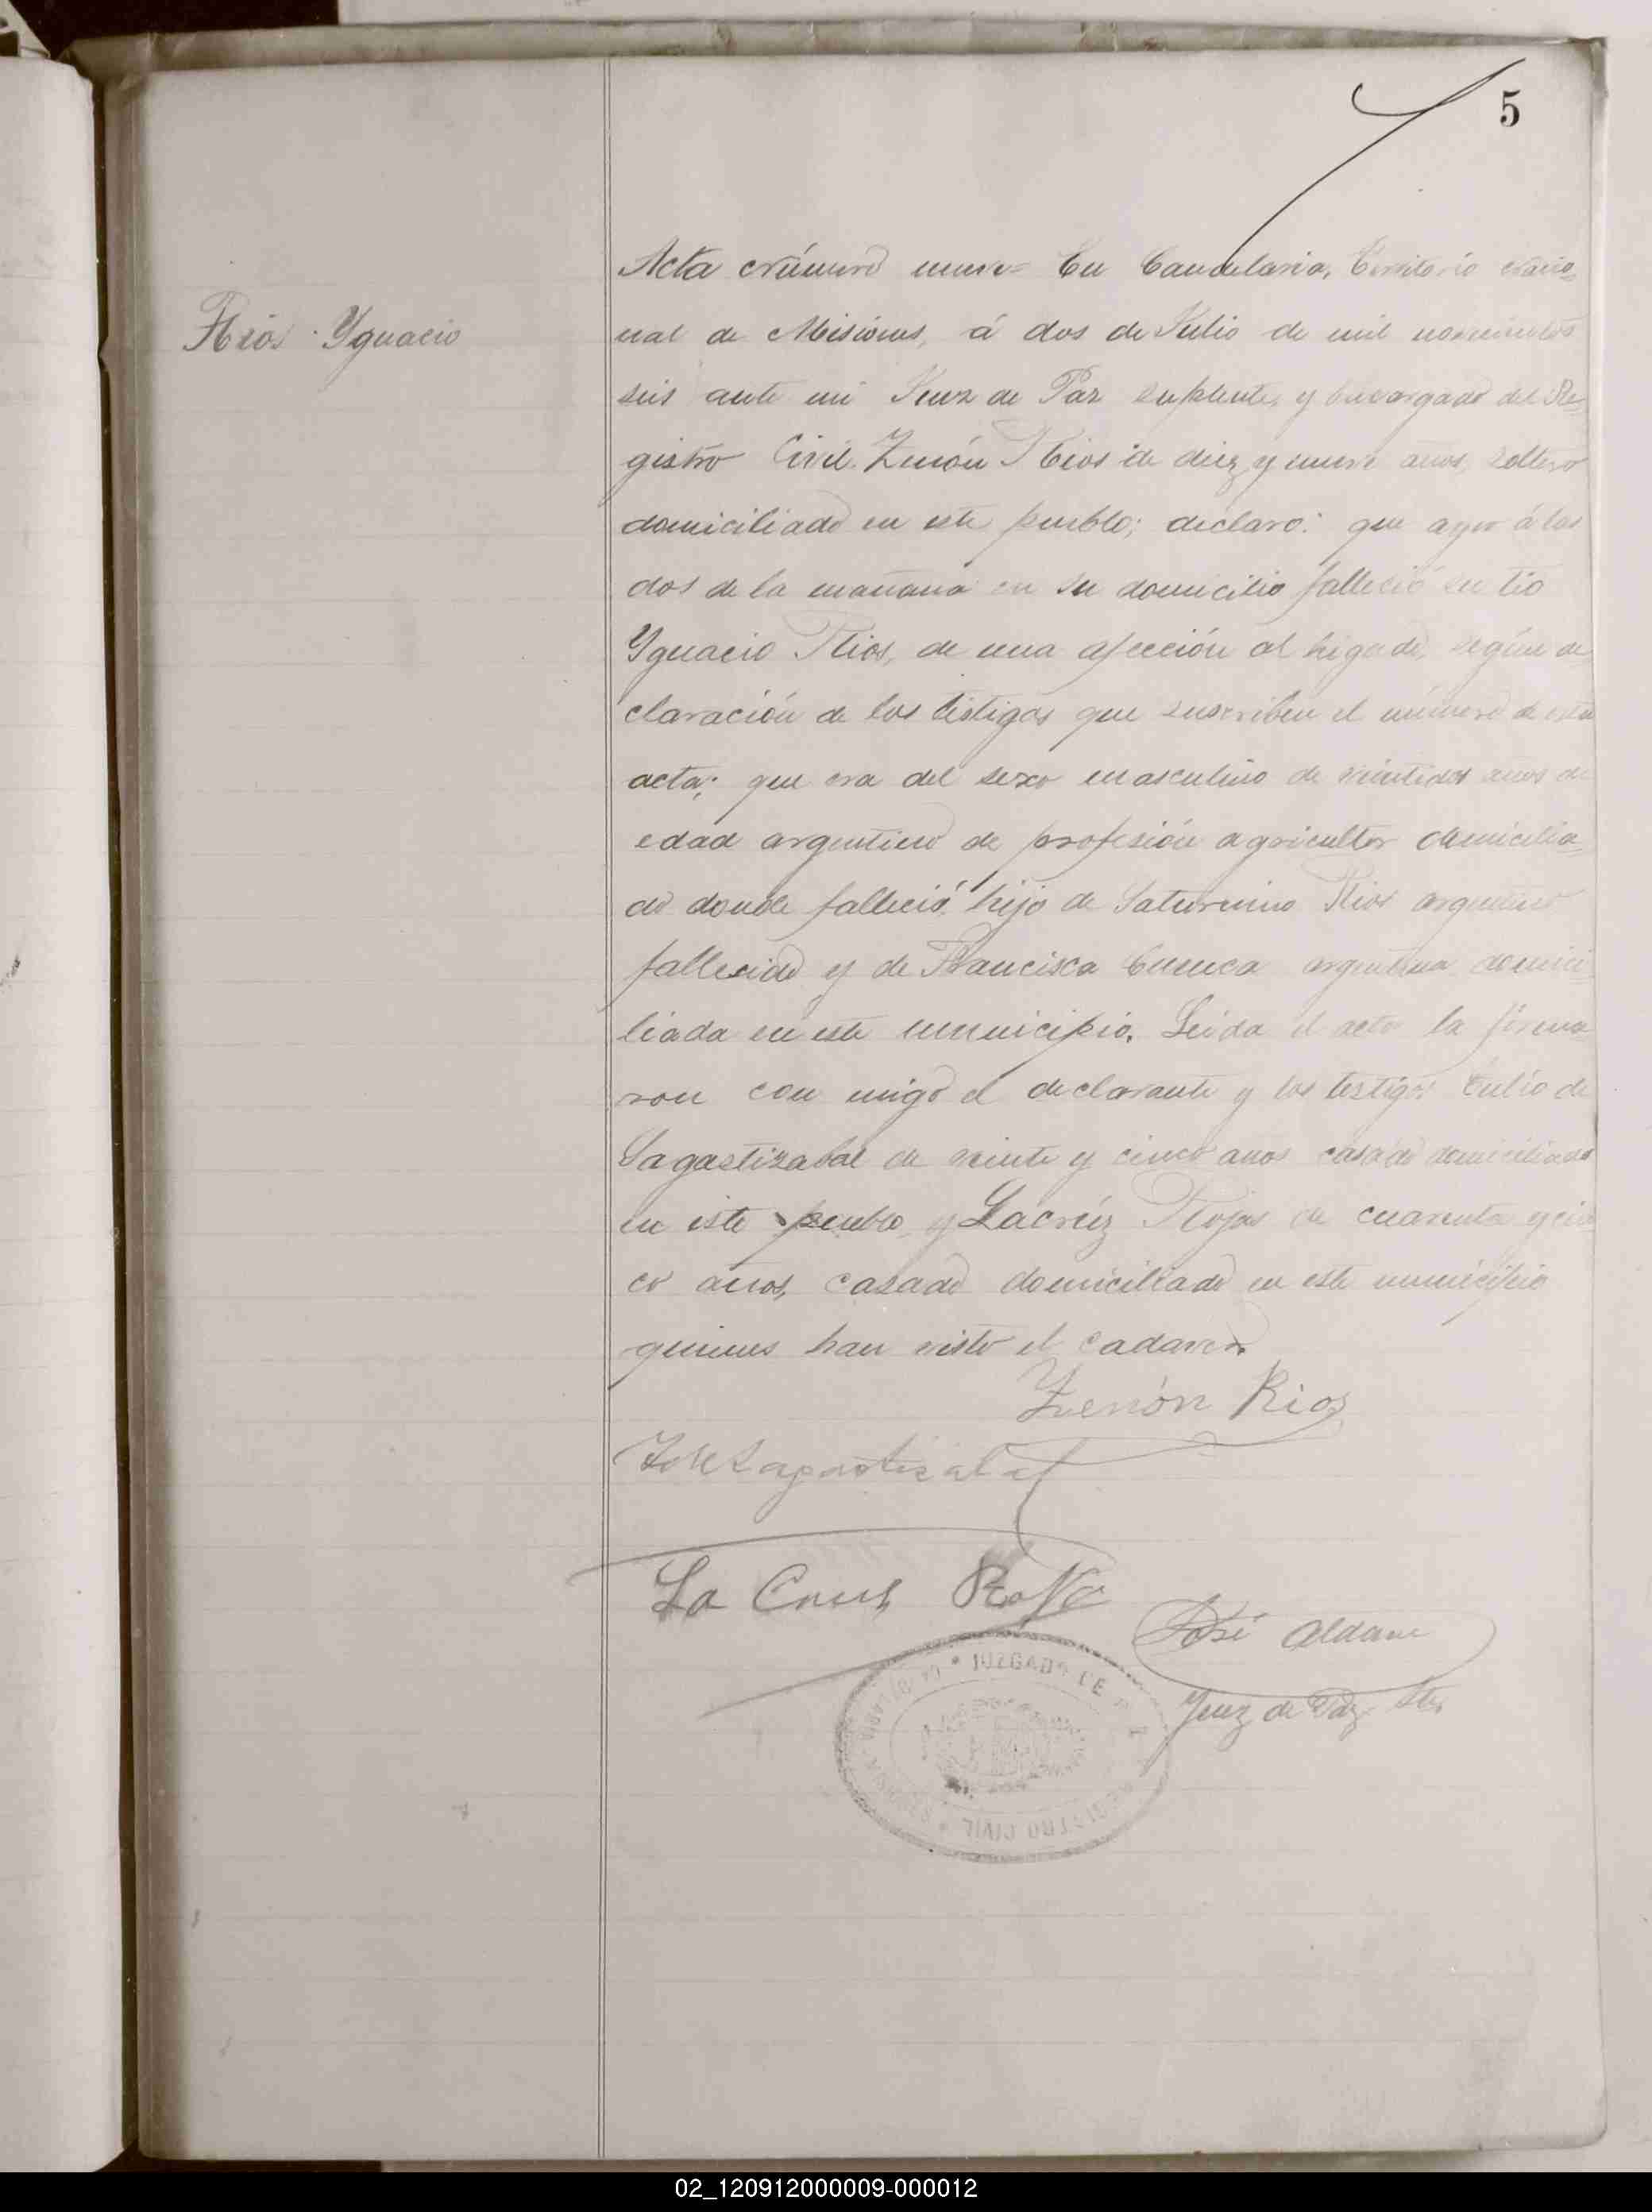 5
Rios Ygnacio
Acta número nueve = En Candelaria, Territorio nacio=
nal de Misiones, á dos de Julio de mil novecientos
seis ante mi Juez de Paz suplente, y Encargado del Re=
gistro Civil. Zenón Rios de diez y nueve años, soltero
domiciliado en este pueblo; declaró: que ayer á las
dos de la mañana en su domicilio falleció su tio
Ygnacio Rios, de una afección al higado, según de
claración de los testigos que suscriben el número de esta
acta; que era del sexo masculino de veintidos años de
edad argentino de profesión agricultor domicilia=
do donde falleció, hijo de Saturnino Rios argentino
fallecido y de Francisca Cuenca argentina domici=
liada en este municipio. Leida el acta la firma
ron con migo el declarante y los testigos Julio de
Sagastizabal de veinte y cinco años casado domiciliado
en este pueblo y Lacrúz Rojas de cuarenta y cin
co años, casado domiciliado en este municipio
quienes han visto el cadaver.
Zenón Rios
Sagastizabal
La Crus Rojas
José Aldana
Juez de Paz Ste.
JUZGADO DE PAZ
REGISTRO CIVIL
02_120912000009-000012